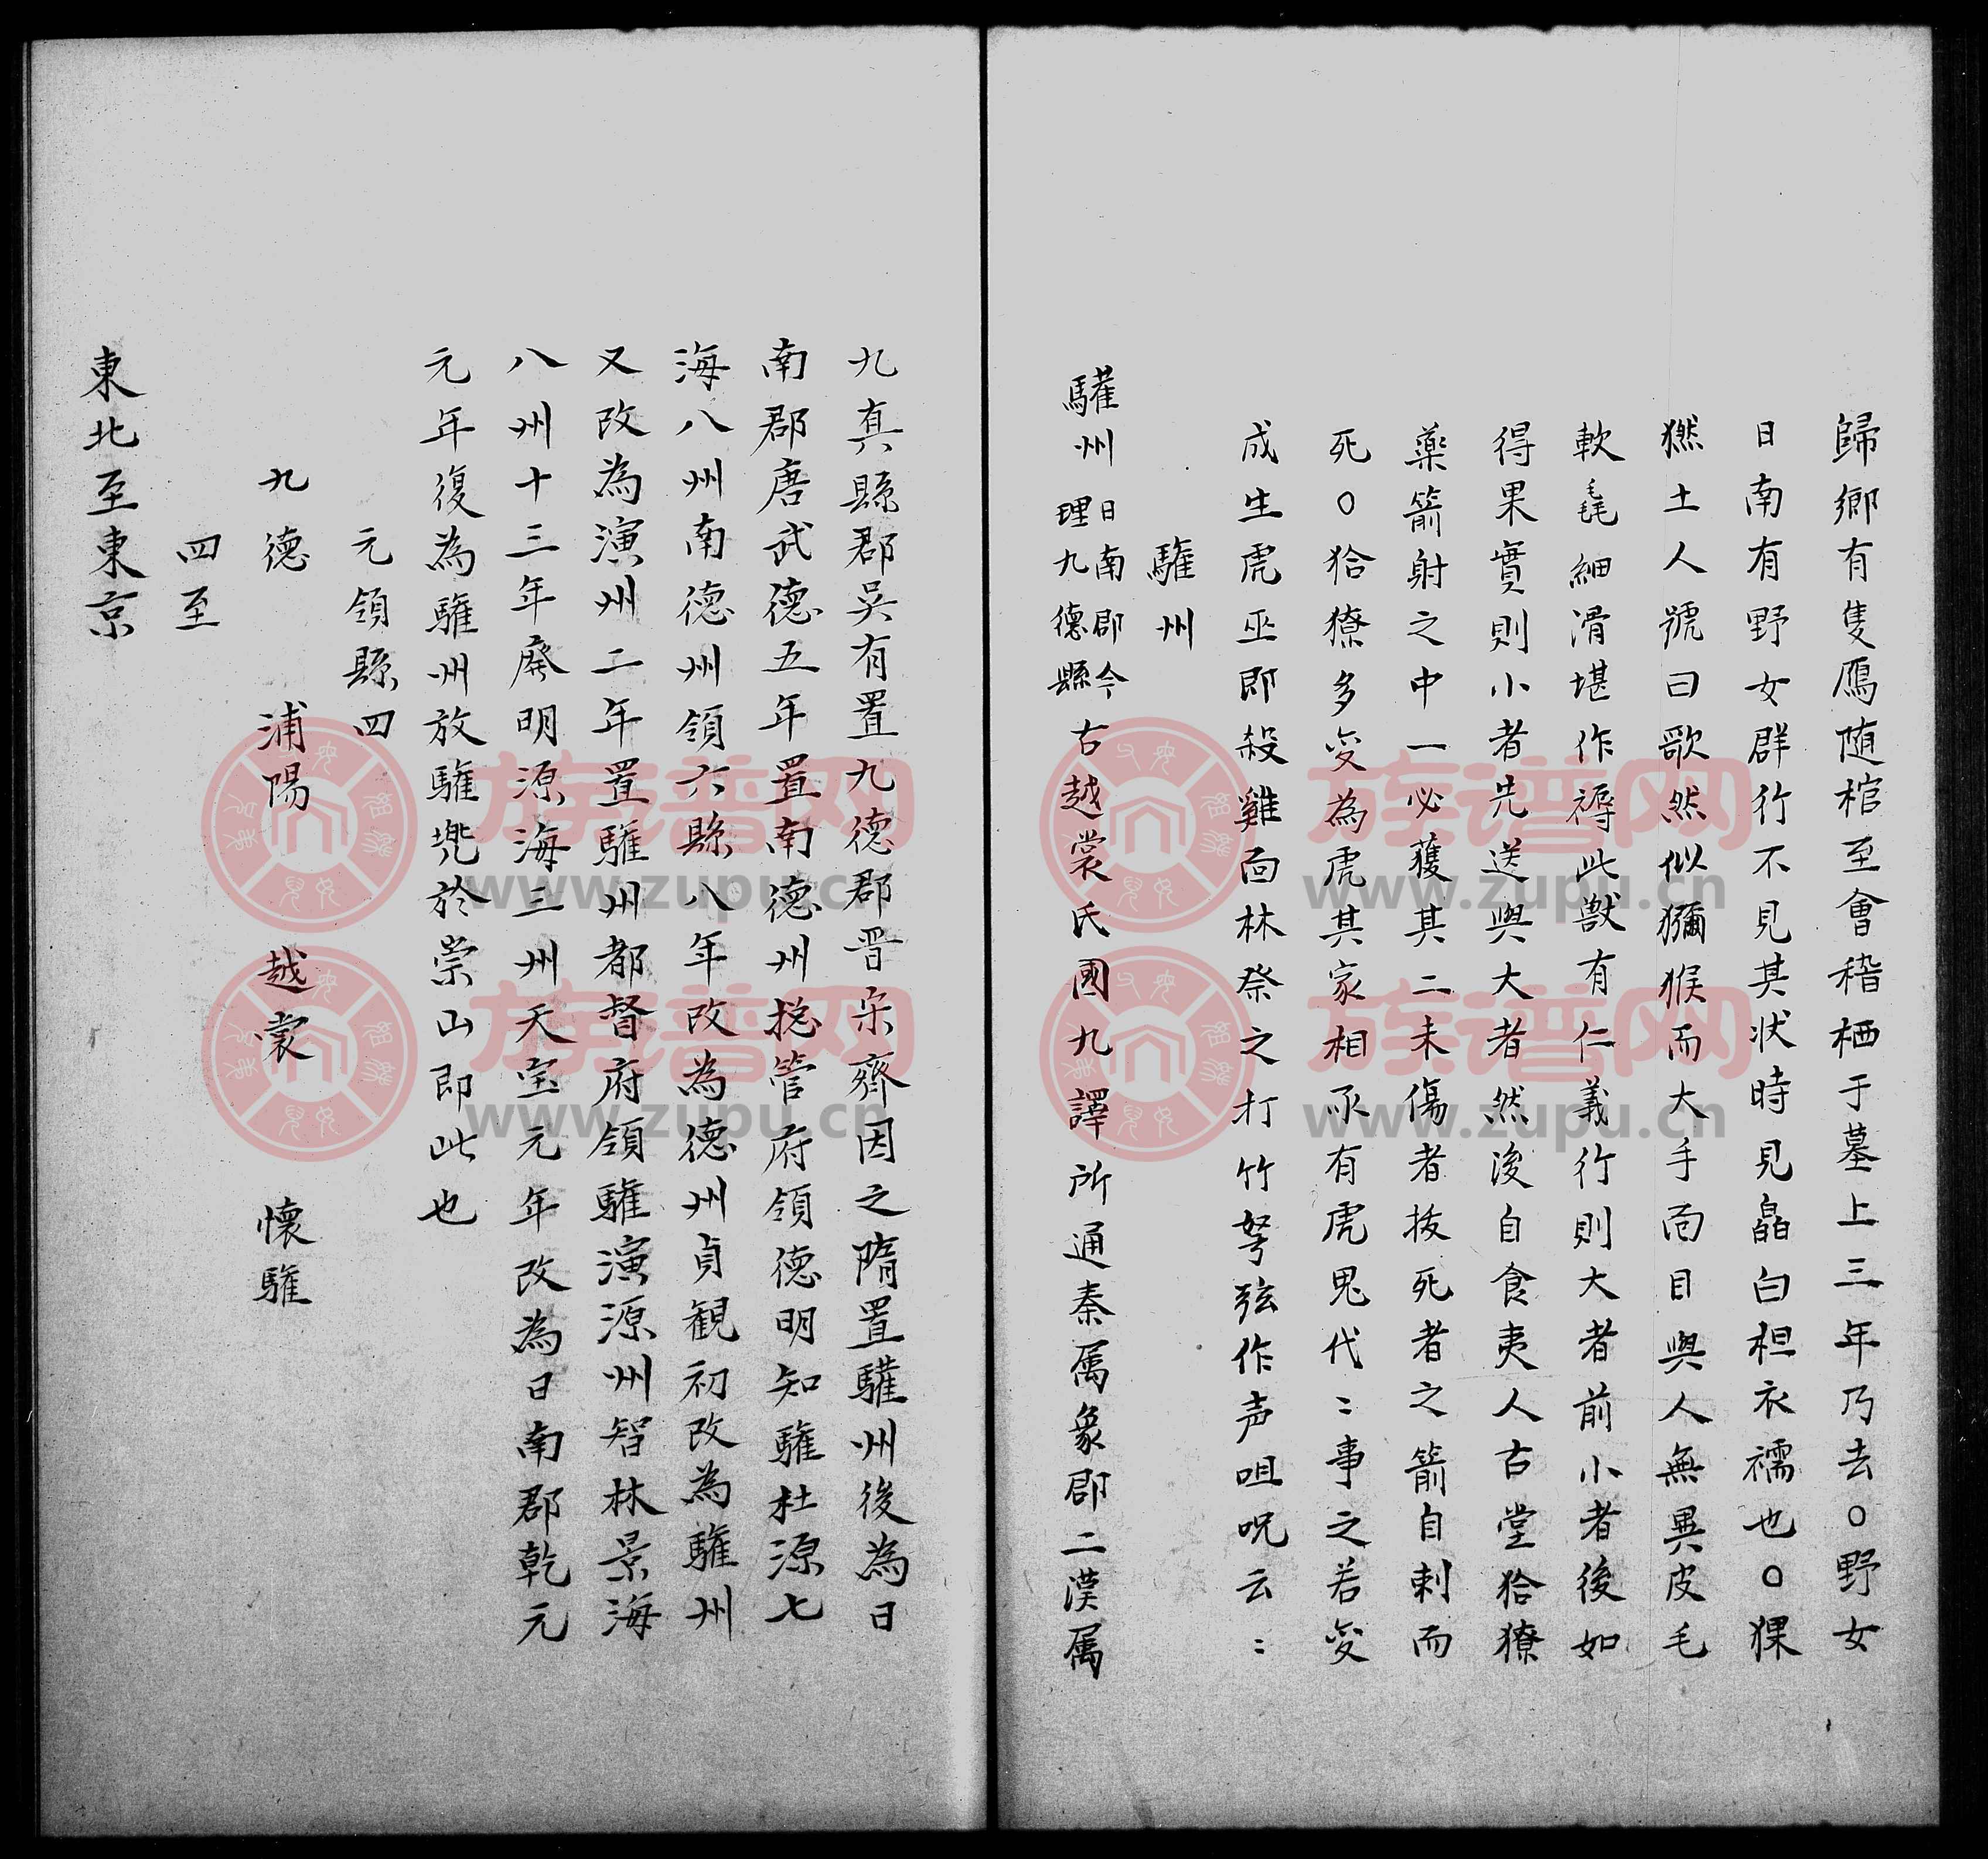 歸鄉有隻鴈随棺至會稽栖于墓上三年乃去○野女
日南有野女群行不見其状時見皛白袒衣襦也○猓
㹛土人號曰歌然似獼猴而大手面目與人無異皮毛
軟毳細滑堪作褥此獣有仁義行則大者前小者後如
得果實則小者先送與大者然後自食夷人古堂狤獠
藥箭射之中一必獲其二未傷者拔死者之箭自刺而
死○狤獠多变為虎其家相承有虎鬼代〻事之若变
成生虎巫即殺雞面林祭之打竹弩弦作声咀呪云〻
驩州
驩州日南郡今理九德縣古越裳氏國九譯所通秦属象郡二漢属
九真縣郡吳有置九德郡晋宋齊因之隋置驩州後為日
南郡唐武德五年置南德州揔管府領德明知驩杜源七
海八州南德州領六縣八年改為德州貞観初改為驩州
又改為演州二年置驩州都督府領驩演源州智林景海
八州十三年廢明源海三州天宝元年改為日南郡乾元
元年復為驩州放驩兠於崇山即此也
元領縣四
九德 浦陽 越裳 懷驩
四至
東北至東京
族谱网
www.zupu.cn
族谱网
www.zupu.cn
族谱网
www.zupu.cn
族谱网
www.zupu.cn